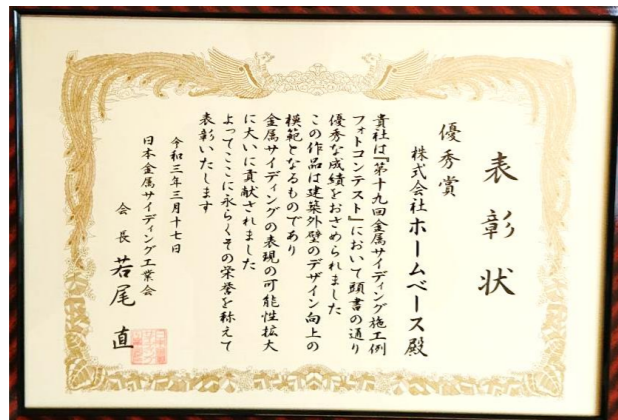 表彰状
優秀賞
株式会社ホームベース殿
貴社は『第十九回金属サイディング施工例
フォトコンテスト』において頭書の通り
優秀な成績をおさめられました
この作品は建築外壁のデザイン向上の
模範となるものであり
金属サイディングの表現の可能性拡大
に大いに貢献されました
よってここに永らくその栄誉を称えて
表彰いたします
令和三年三月十七日
日本金属サイディング工業会
会長 若尾直